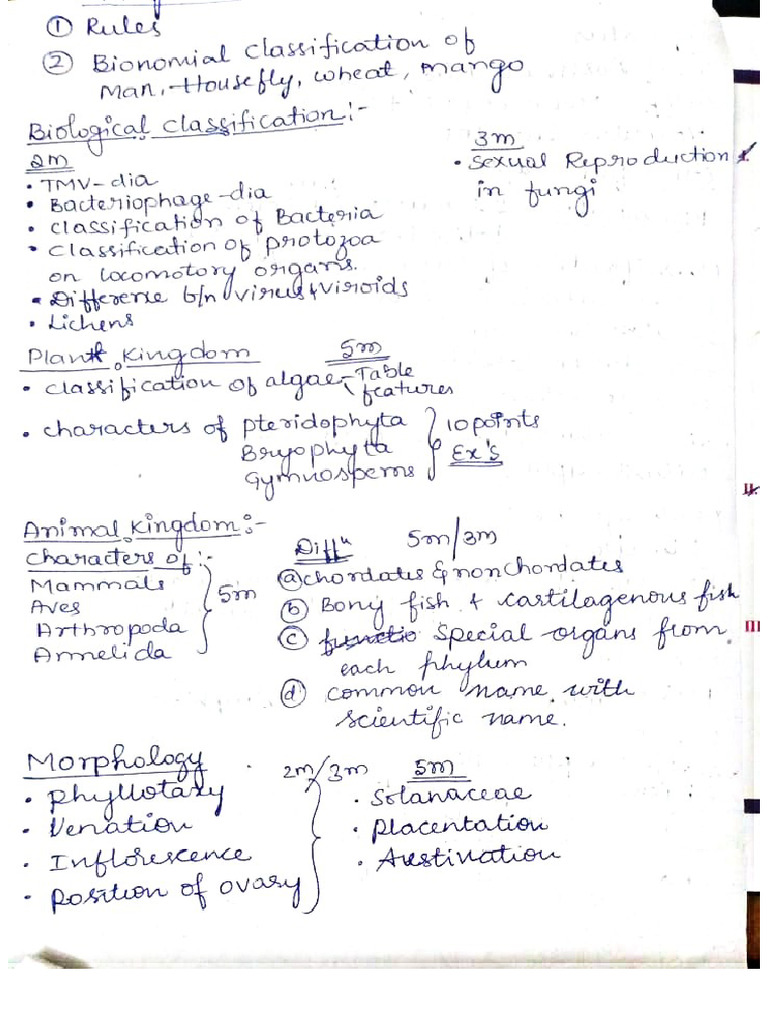 ① Rules
② Bionomial classification of
Man, Housefly, wheat, mango
Biological classification:-
2m
• TMV-dia
• Bacteriophage-dia
• classification of Bacteria
• classification of protozoa
on locomotory organs.
• Difference b/n virus & viroids
• Lichens
3m
• Sexual Reproduction
in fungi
Plant Kingdom 5m
• classification of algae - Table
features
• characters of pteridophyta
Bryophyta
Gymnosperms
10 points
Ex's
Animal Kingdom:-
characters of:-
Mammals
Aves
Arthropoda
Annelida
5m
Diffn 5m/3m
ⓐ chordates & nonchordates
ⓑ Bony fish & cartilagenous fish
ⓒ functio special organs from
each phylum
ⓓ common name with
scientific name.
Morphology
• phyllotaxy
• Venation
• Inflorescence
• position of ovary
2m/3m
5m
• Solanaceae
• placentation
• Aestivation
II.
III